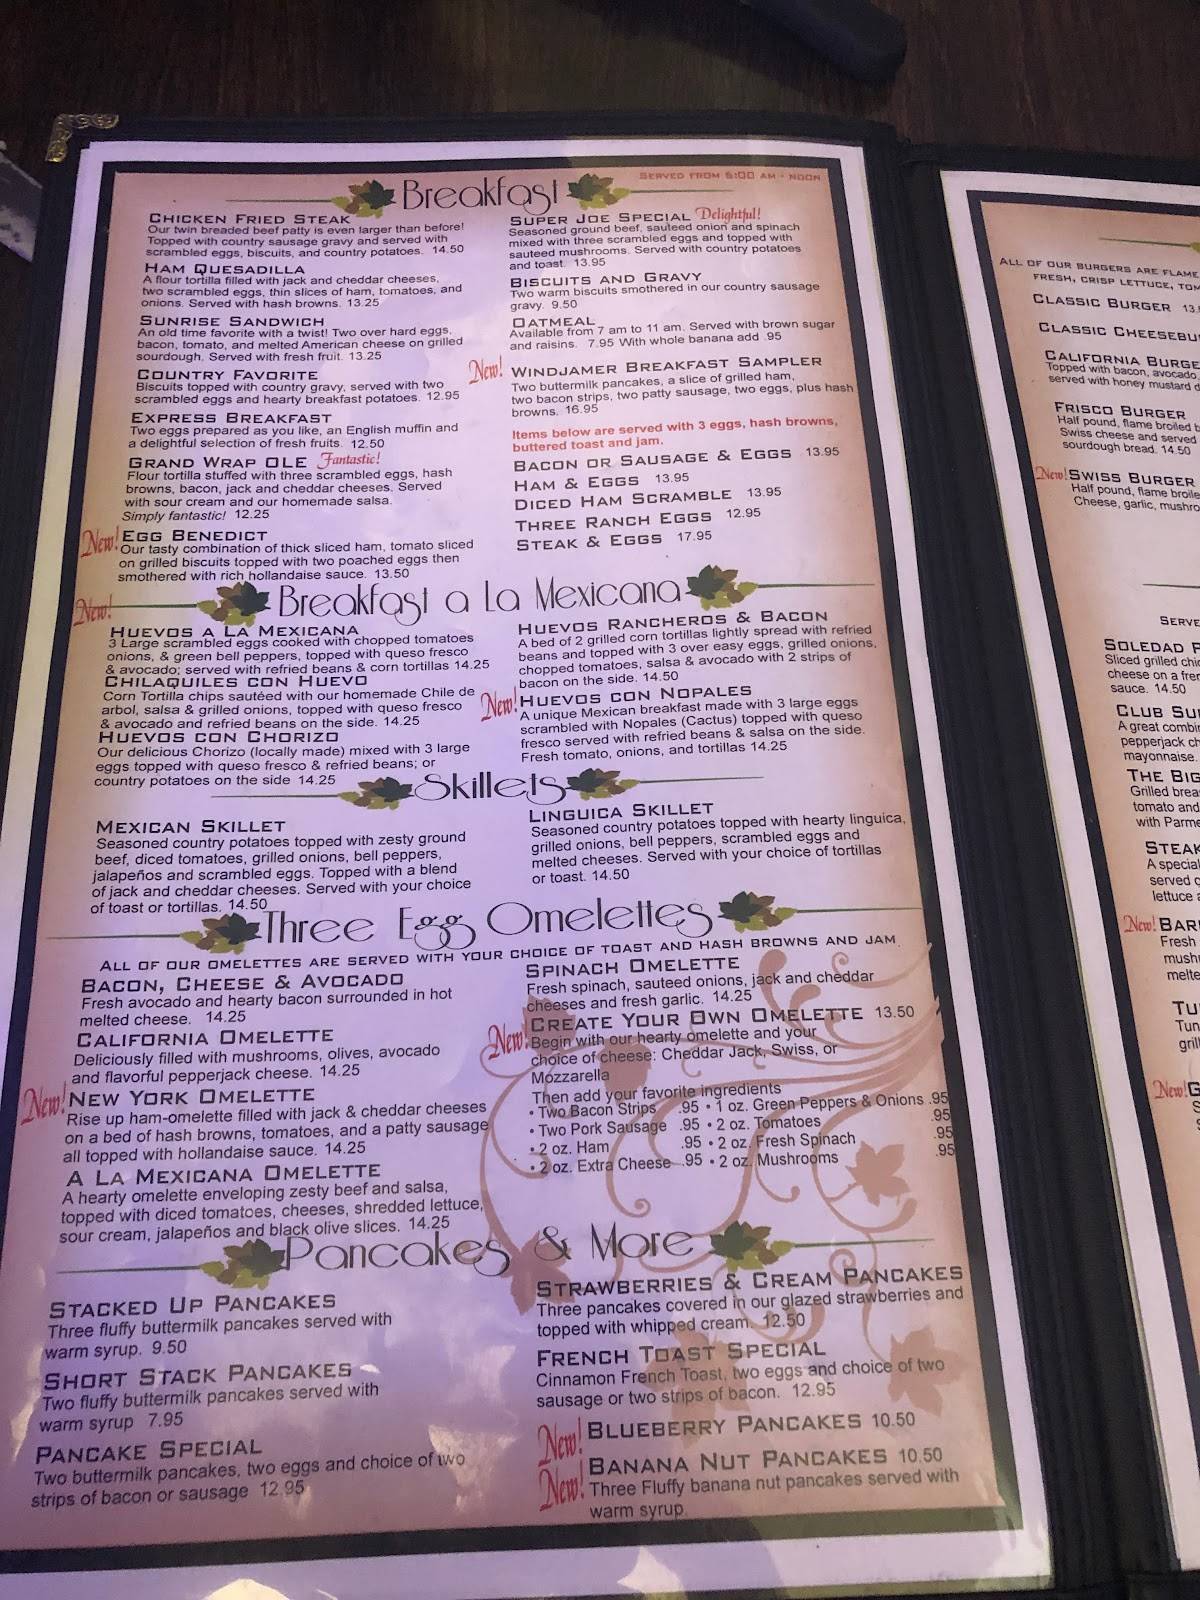 Breakfast
SERVED FROM 6:00 AM - NOON
CHICKEN FRIED STEAK
Our twin breaded beef patty is even larger than before!
Topped with country sausage gravy and served with
scrambled eggs, biscuits, and country potatoes. 14.50
HAM QUESADILLA
A flour tortilla filled with jack and cheddar cheeses,
two scrambled eggs, thin slices of ham, tomatoes, and
onions. Served with hash browns. 13.25
SUNRISE SANDWICH
An old time favorite with a twist! Two over hard eggs,
bacon, tomato, and melted American cheese on grilled
sourdough. Served with fresh fruit. 13.25
COUNTRY FAVORITE
Biscuits topped with country gravy, served with two
scrambled eggs and hearty breakfast potatoes. 12.95
EXPRESS BREAKFAST
Two eggs prepared as you like, an English muffin and
a delightful selection of fresh fruits. 12.50
GRAND WRAP OLE Fantastic!
Flour tortilla stuffed with three scrambled eggs, hash
browns, bacon, jack and cheddar cheeses. Served
with sour cream and our homemade salsa.
Simply fantastic! 12.25
New! EGG BENEDICT
Our tasty combination of thick sliced ham, tomato sliced
on grilled biscuits topped with two poached eggs then
smothered with rich hollandaise sauce. 13.50
SUPER JOE SPECIAL Delightful!
Seasoned ground beef, sauteed onion and spinach
mixed with three scrambled eggs and topped with
sauteed mushrooms. Served with country potatoes
and toast. 13.95
BISCUITS AND GRAVY
Two warm biscuits smothered in our country sausage
gravy. 9.50
OATMEAL
Available from 7 am to 11 am. Served with brown sugar
and raisins. 7.95 With whole banana add .95
New! WINDJAMER BREAKFAST SAMPLER
Two buttermilk pancakes, a slice of grilled ham,
two bacon strips, two patty sausage, two eggs, plus hash
browns. 16.95
Items below are served with 3 eggs, hash browns,
buttered toast and jam.
BACON OR SAUSAGE & EGGS 13.95
HAM & EGGS 13.95
DICED HAM SCRAMBLE 13.95
THREE RANCH EGGS 12.95
STEAK & EGGS 17.95
Breakfast a La Mexicana
New!
HUEVOS A LA MEXICANA
3 Large scrambled eggs cooked with chopped tomatoes
onions, & green bell peppers, topped with queso fresco
& avocado; served with refried beans & corn tortillas 14.25
CHILAQUILES CON HUEVO
Corn Tortilla chips sautéed with our homemade Chile de
arbol, salsa & grilled onions, topped with queso fresco
& avocado and refried beans on the side. 14.25
HUEVOS CON CHORIZO
Our delicious Chorizo (locally made) mixed with 3 large
eggs topped with queso fresco & refried beans; or
country potatoes on the side 14.25
HUEVOS RANCHEROS & BACON
A bed of 2 grilled corn tortillas lightly spread with refried
beans and topped with 3 over easy eggs, grilled onions,
chopped tomatoes, salsa & avocado with 2 strips of
bacon on the side. 14.50
New! HUEVOS CON NOPALES
A unique Mexican breakfast made with 3 large eggs
scrambled with Nopales (Cactus) topped with queso
fresco served with refried beans & salsa on the side.
Fresh tomato, onions, and tortillas 14.25
Skillets
MEXICAN SKILLET
Seasoned country potatoes topped with zesty ground
beef, diced tomatoes, grilled onions, bell peppers,
jalapeños and scrambled eggs. Topped with a blend
of jack and cheddar cheeses. Served with your choice
of toast or tortillas. 14.50
LINGUICA SKILLET
Seasoned country potatoes topped with hearty linguica,
grilled onions, bell peppers, scrambled eggs and
melted cheeses. Served with your choice of tortillas
or toast. 14.50
Three Egg Omelettes
ALL OF OUR OMELETTES ARE SERVED WITH YOUR CHOICE OF TOAST AND HASH BROWNS AND JAM
BACON, CHEESE & AVOCADO
Fresh avocado and hearty bacon surrounded in hot
melted cheese. 14.25
CALIFORNIA OMELETTE
Deliciously filled with mushrooms, olives, avocado
and flavorful pepperjack cheese. 14.25
New! NEW YORK OMELETTE
Rise up ham-omelette filled with jack & cheddar cheeses
on a bed of hash browns, tomatoes, and a patty sausage
all topped with hollandaise sauce. 14.25
A LA MEXICANA OMELETTE
A hearty omelette enveloping zesty beef and salsa,
topped with diced tomatoes, cheeses, shredded lettuce,
sour cream, jalapeños and black olive slices. 14.25
SPINACH OMELETTE
Fresh spinach, sauteed onions, jack and cheddar
cheeses and fresh garlic. 14.25
New! CREATE YOUR OWN OMELETTE 13.50
Begin with our hearty omelette and your
choice of cheese: Cheddar Jack, Swiss, or
Mozzarella
Then add your favorite ingredients
• Two Bacon Strips .95 • 1 oz. Green Peppers & Onions .95
• Two Pork Sausage .95 • 2 oz. Tomatoes .95
• 2 oz. Ham .95 • 2 oz. Fresh Spinach .95
• 2 oz. Extra Cheese .95 • 2 oz. Mushrooms .95
Pancakes & More
STACKED UP PANCAKES
Three fluffy buttermilk pancakes served with
warm syrup. 9.50
SHORT STACK PANCAKES
Two fluffy buttermilk pancakes served with
warm syrup 7.95
PANCAKE SPECIAL
Two buttermilk pancakes, two eggs and choice of two
strips of bacon or sausage 12.95
STRAWBERRIES & CREAM PANCAKES
Three pancakes covered in our glazed strawberries and
topped with whipped cream. 12.50
FRENCH TOAST SPECIAL
Cinnamon French Toast, two eggs and choice of two
sausage or two strips of bacon. 12.95
New! BLUEBERRY PANCAKES 10.50
New! BANANA NUT PANCAKES 10.50
Three Fluffy banana nut pancakes served with
warm syrup.
ALL OF OUR BURGERS ARE FLAME
FRESH, CRISP LETTUCE, TOM
CLASSIC BURGER 13.
CLASSIC CHEESEBU
CALIFORNIA BURGE
Topped with bacon, avocado,
served with honey mustard
FRISCO BURGER
Half pound, flame broiled
Swiss cheese and served
sourdough bread. 14.50
New! SWISS BURGER
Half pound, flame broile
Cheese, garlic, mushro
SERVE
SOLEDAD
Sliced grilled chi
cheese on a fre
sauce. 14.50
CLUB SU
A great combi
pepperjack ch
mayonnaise.
THE BIG
Grilled brea
tomato and
with Parme
STEAK
A special
served
lettuce
New! BAR
Fresh
mush
melte
TU
Tun
gril
New! G